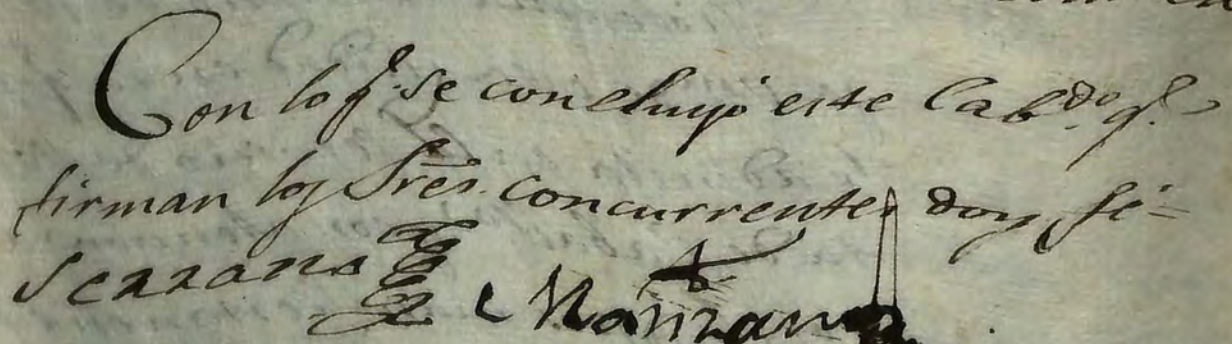 Con lo q.e se concluyó este Cab.do q.e
firman los Sres. concurrentes doy fé=
Serrano Manzano